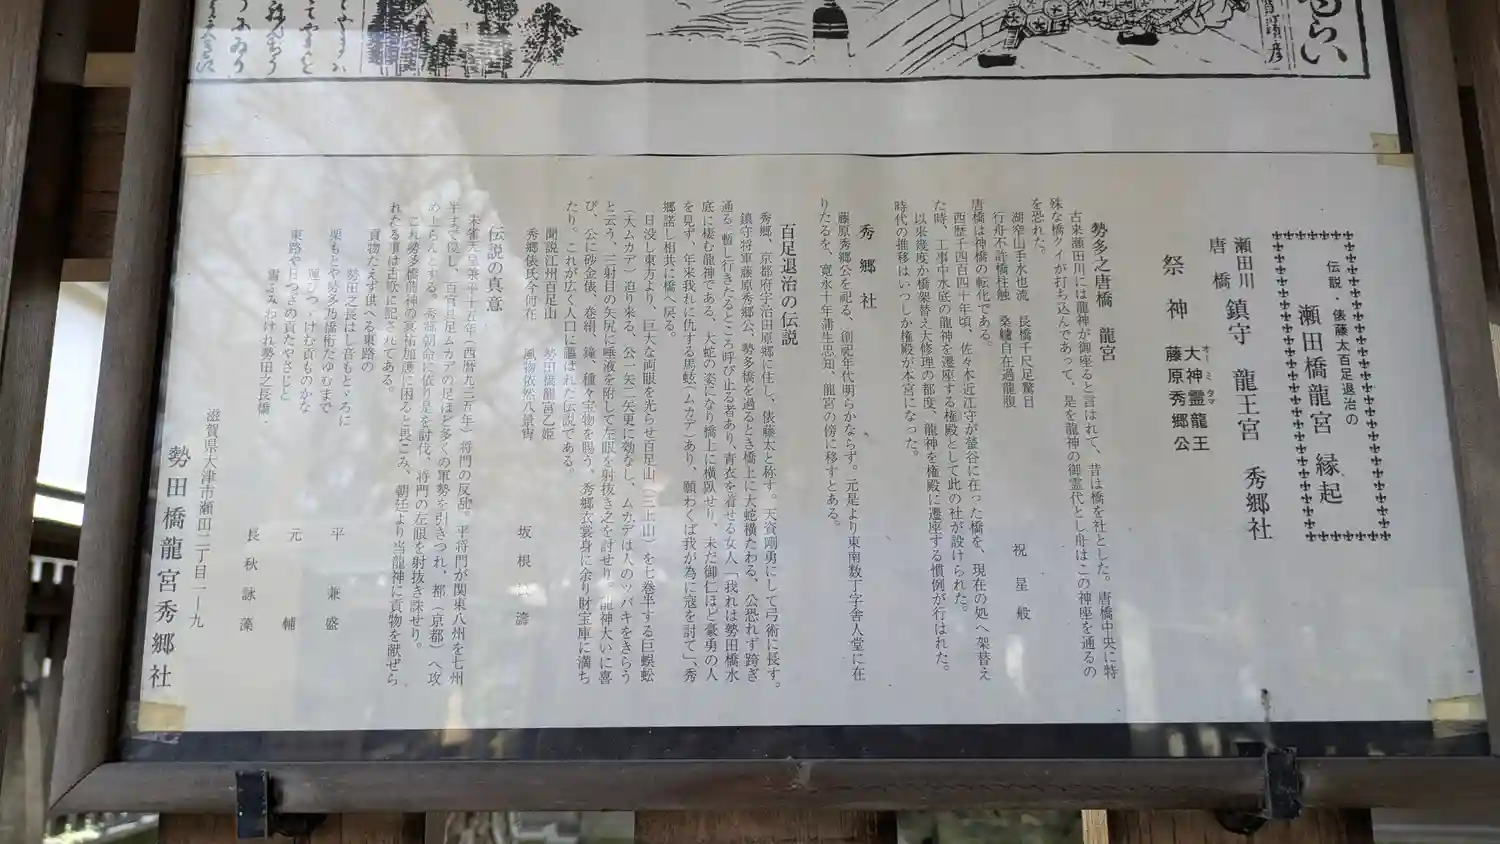 伝説・俵藤太百足退治の
瀬田橋龍宮 縁起
瀬田川 唐橋 鎮守 龍王宮 秀郷社
祭神 大神霊龍王 藤原秀郷公
オーミタマ
勢多之唐橋 龍宮
古来瀬田川には龍神が御座ると言はれて、昔は橋を社とした。唐橋中央に特
殊な橋クイが打ち込んであって、是を龍神の御霊代とし舟はこの神座を通るの
を恐れた。
湖窄山手水也流 長橋千尺足驚日
行舟不許橋柱触 桑艫自任過龍腹 祝星般
唐橋は神橋の転化である。
西歴千四百四十年頃、佐々木近江守が螢谷に在った橋を、現在の処へ架替え
た時、工事中水底の龍神を遷座する権殿として此の社が設けられた。
以来幾度か橋架替え大修理の都度、龍神を権殿に遷座する慣例が行はれた。
時代の推移はいつしか権殿が本宮になった。
秀郷社
藤原秀郷公を祀る、創祀年代明らかならず。元是より東南数丁字舎人堂に在
りたるを、寛永十年蒲生忠知、龍宮の傍に移すとある。
百足退治の伝説
秀郷、京都府宇治田原郷に住し、俵藤太と称す。天資剛勇にして弓術に長す。
鎮守将軍藤原秀郷公、勢多橋を過るとき橋上に大蛇横たわる、公恐れず跨ぎ
通る。暫し行きたるところ呼び止る者あり、青衣を着せる女人「我れは勢田橋水
底に棲む龍神である。大蛇の姿になり橋上に横臥せり、未だ御仁ほど豪勇の人
を見ず、年来我れに仇する馬蚿（ムカデ）あり、願わくば我が為に寇を討て」、秀
郷諾し相共に橋へ戻る。
日没し東方より、巨大な両眼を光らせ百足山（三上山）を七巻半する巨蜈蚣
（大ムカデ）迫り来る、公一矢二矢更に効なし、ムカデは人のツバキをきらう
と云う、三射目の矢尻に唾液を附して左眼を射抜き之を討せり。龍神大いに喜
び、公に砂金俵、巻絹、鐘、種々宝物を賜う、秀郷衣裳身に余り財宝庫に満ち
たり。これが広く人口に謳はれた伝説である。
聞説江州百足山 勢田橋龍宮乙姫
秀郷俵氏今何在 風物依然八景宵 坂根 濤
伝説の真意
朱雀天皇承平十五年（西暦九三五年）将門の反乱。平将門が関東八州を七州
半まで侵し、百官具足ムカデの足ほど多くの軍勢を引きつれ、都（京都）へ攻
め上らんとする。秀郷朝命に依り是を討伐、将門の左眼を射抜き誅せり。
これ勢多橋龍神の冥祐加護に因ると畏こみ、朝廷より当龍神に貢物を献ぜら
れたる事は古歌に記されてある。
貢物たえず供へる東路の
勢田之長はし音もとゞろに 平兼盛
東路や日つぎの貢たやさじと
雪ふみわけれ勢田之長橋・ 長秋詠藻
元輔
滋賀県大津市瀬田二丁目一―九
勢田橋龍宮秀郷社